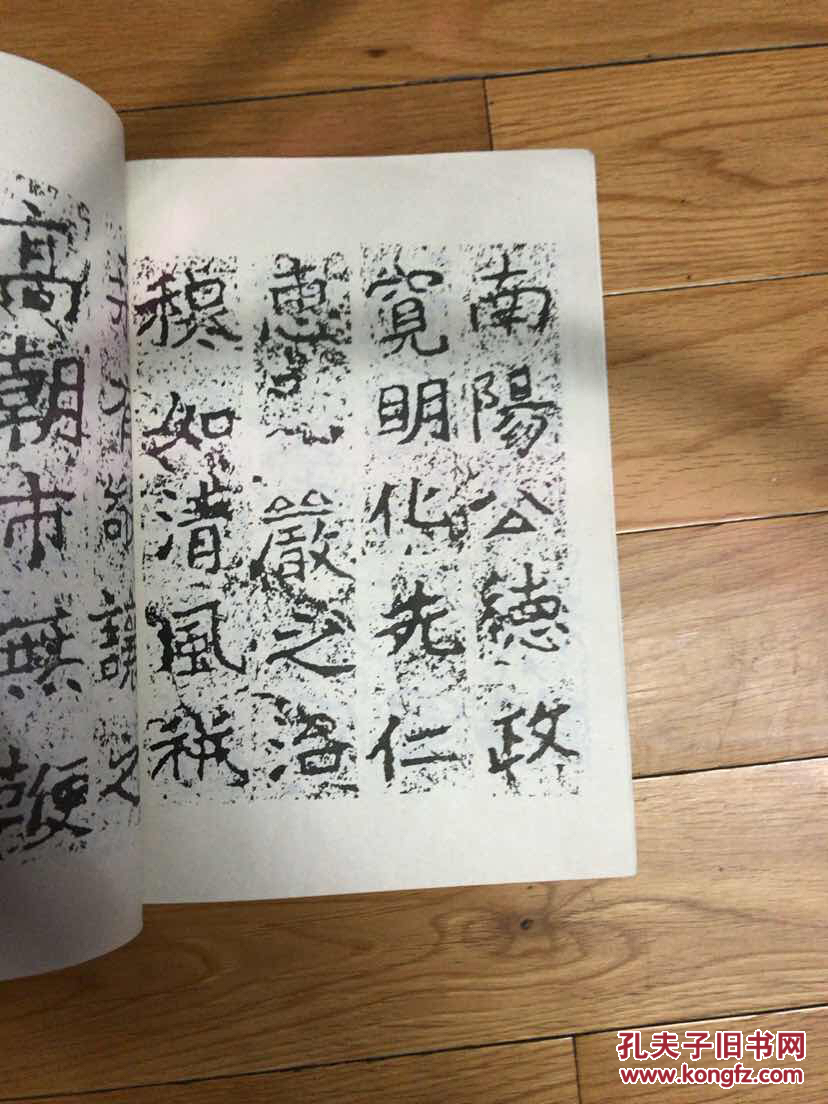 南陽公德政
寬明化先仁
惠 嚴之洛
穆如清風
之
高朝市無鞭
孔夫子旧书网
www.kongfz.com